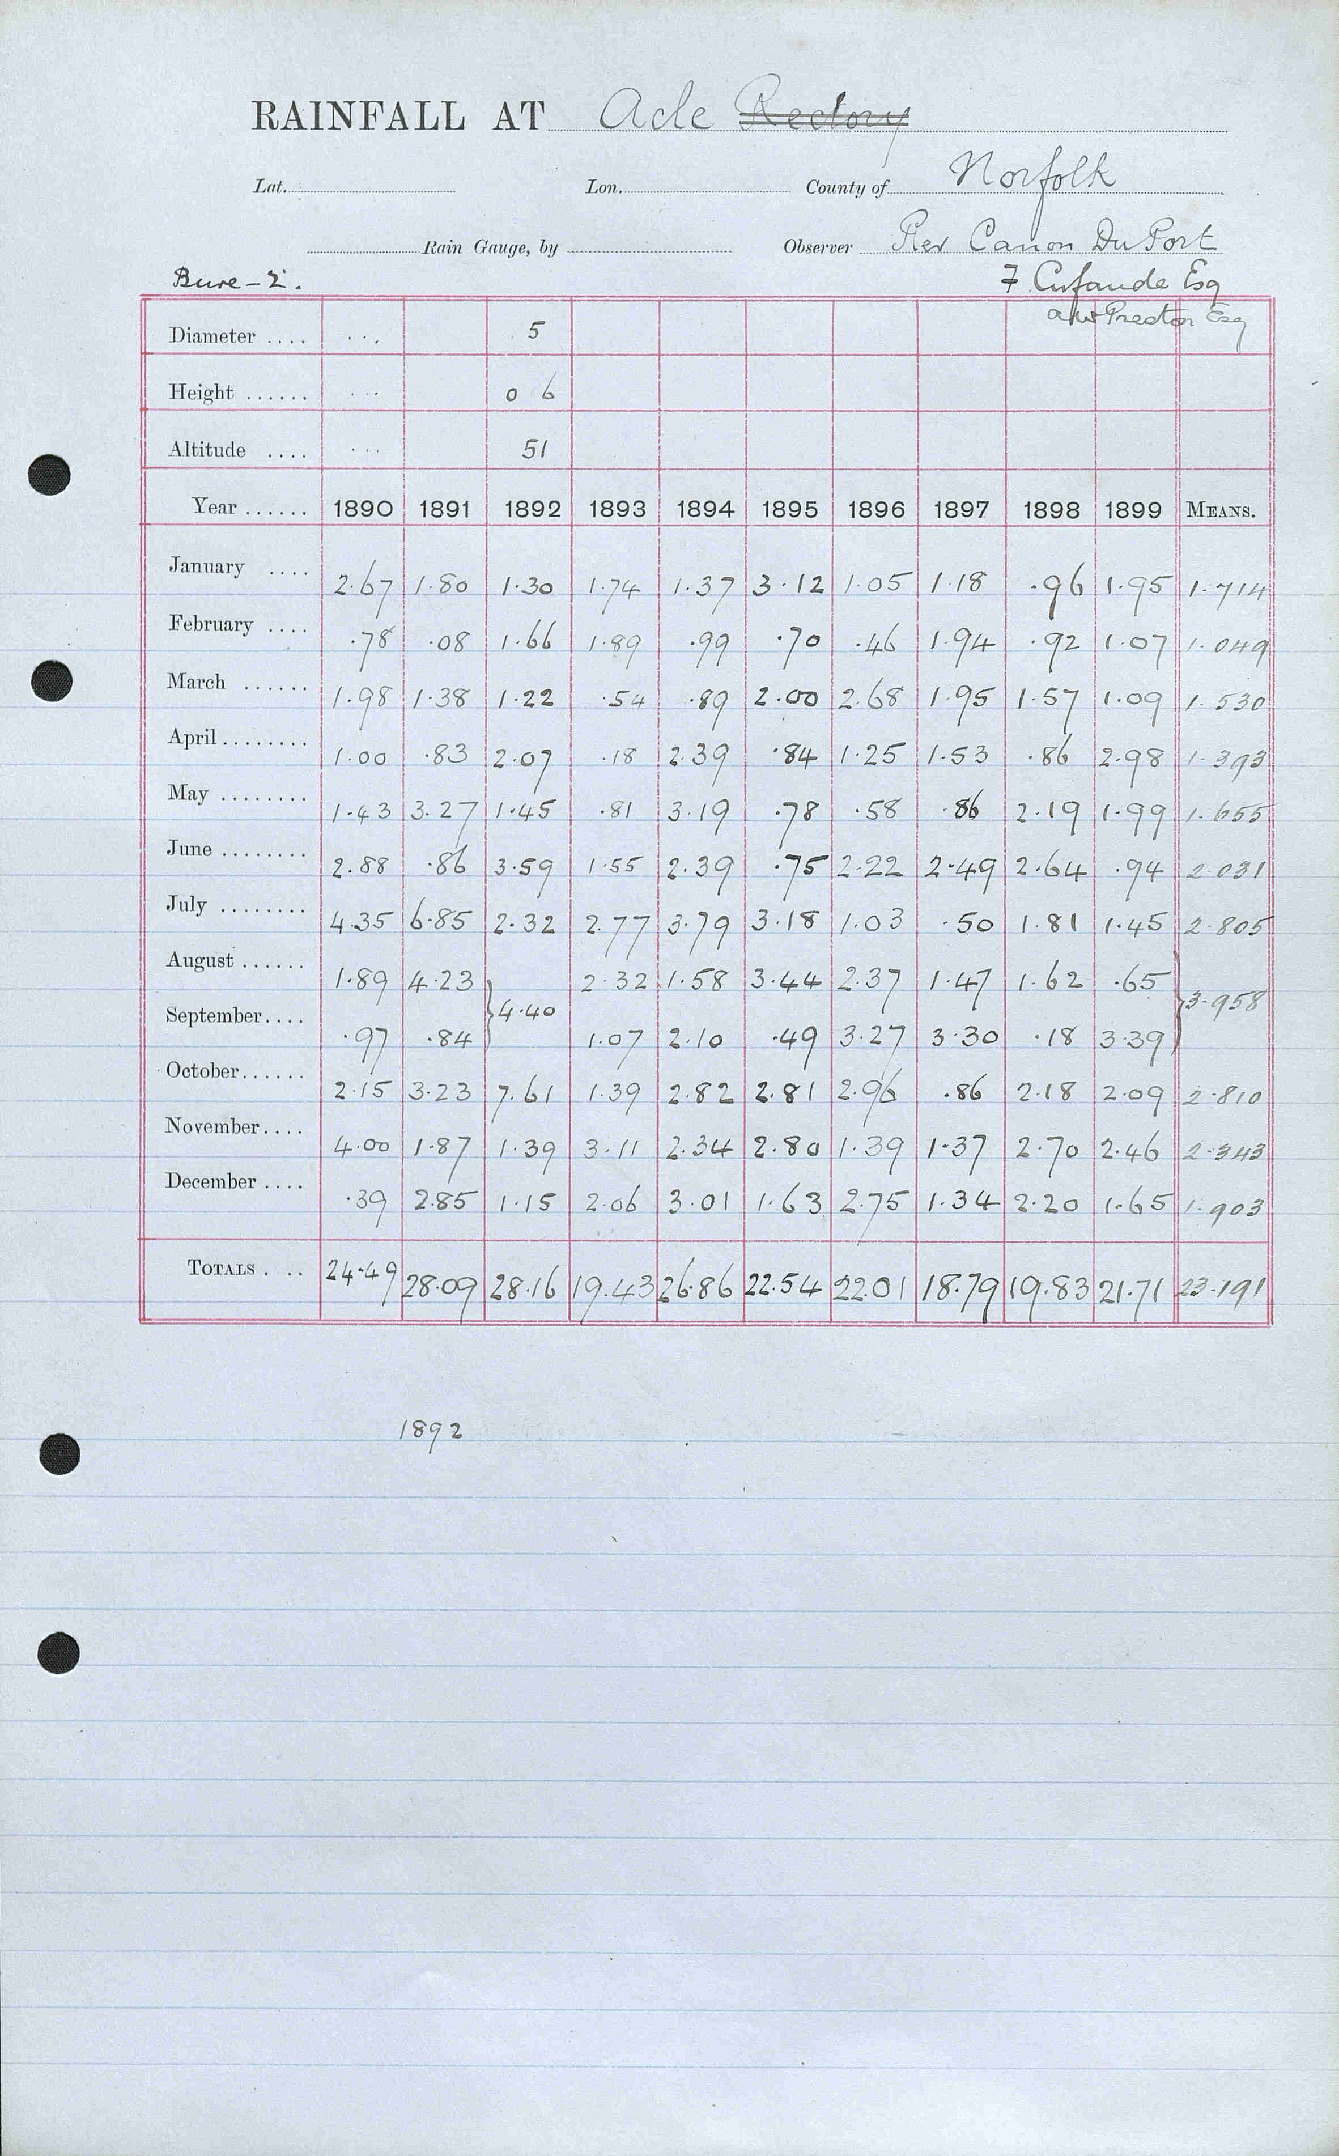 RAINFALL AT Acle Rectory
Lat. Lon. County of Norfolk
Rain Gauge, by Observer Rev Canon Du Port
Bure - 2. 7 Cufaude Esq
A W Preston Esq
Diameter .... ... 5
Height ...... ... 0 6
Altitude .... ... 51
Year ...... 1890 1891 1892 1893 1894 1895 1896 1897 1898 1899 MEANS.
January .... 2.67 1.80 1.30 1.74 1.37 3.12 1.05 1.18 .96 1.95 1.714
February .... .78 .08 1.66 1.89 .99 .70 .46 1.94 .92 1.07 1.049
March ...... 1.98 1.38 1.22 .54 .89 2.00 2.68 1.95 1.57 1.09 1.530
April ........ 1.00 .83 2.07 .18 2.39 .84 1.25 1.53 .86 2.98 1.393
May ........ 1.43 3.27 1.45 .81 3.19 .78 .58 .86 2.19 1.99 1.655
June ........ 2.88 .86 3.59 1.55 2.39 .75 2.22 2.49 2.64 .94 2.031
July ........ 4.35 6.85 2.32 2.77 3.79 3.18 1.03 .50 1.81 1.45 2.805
August ...... 1.89 4.23 2.32 1.58 3.44 2.37 1.47 1.62 .65
} 4.40 } 3.958
September .... .97 .84 1.07 2.10 .49 3.27 3.30 .18 3.39
October ...... 2.15 3.23 7.61 1.39 2.82 2.81 2.96 .86 2.18 2.09 2.810
November .... 4.00 1.87 1.39 3.11 2.34 2.80 1.39 1.37 2.70 2.46 2.343
December .... .39 2.85 1.15 2.06 3.01 1.63 2.75 1.34 2.20 1.65 1.903
TOTALS .... 24.49 28.09 28.16 19.43 26.86 22.54 22.01 18.79 19.83 21.71 23.191
1892